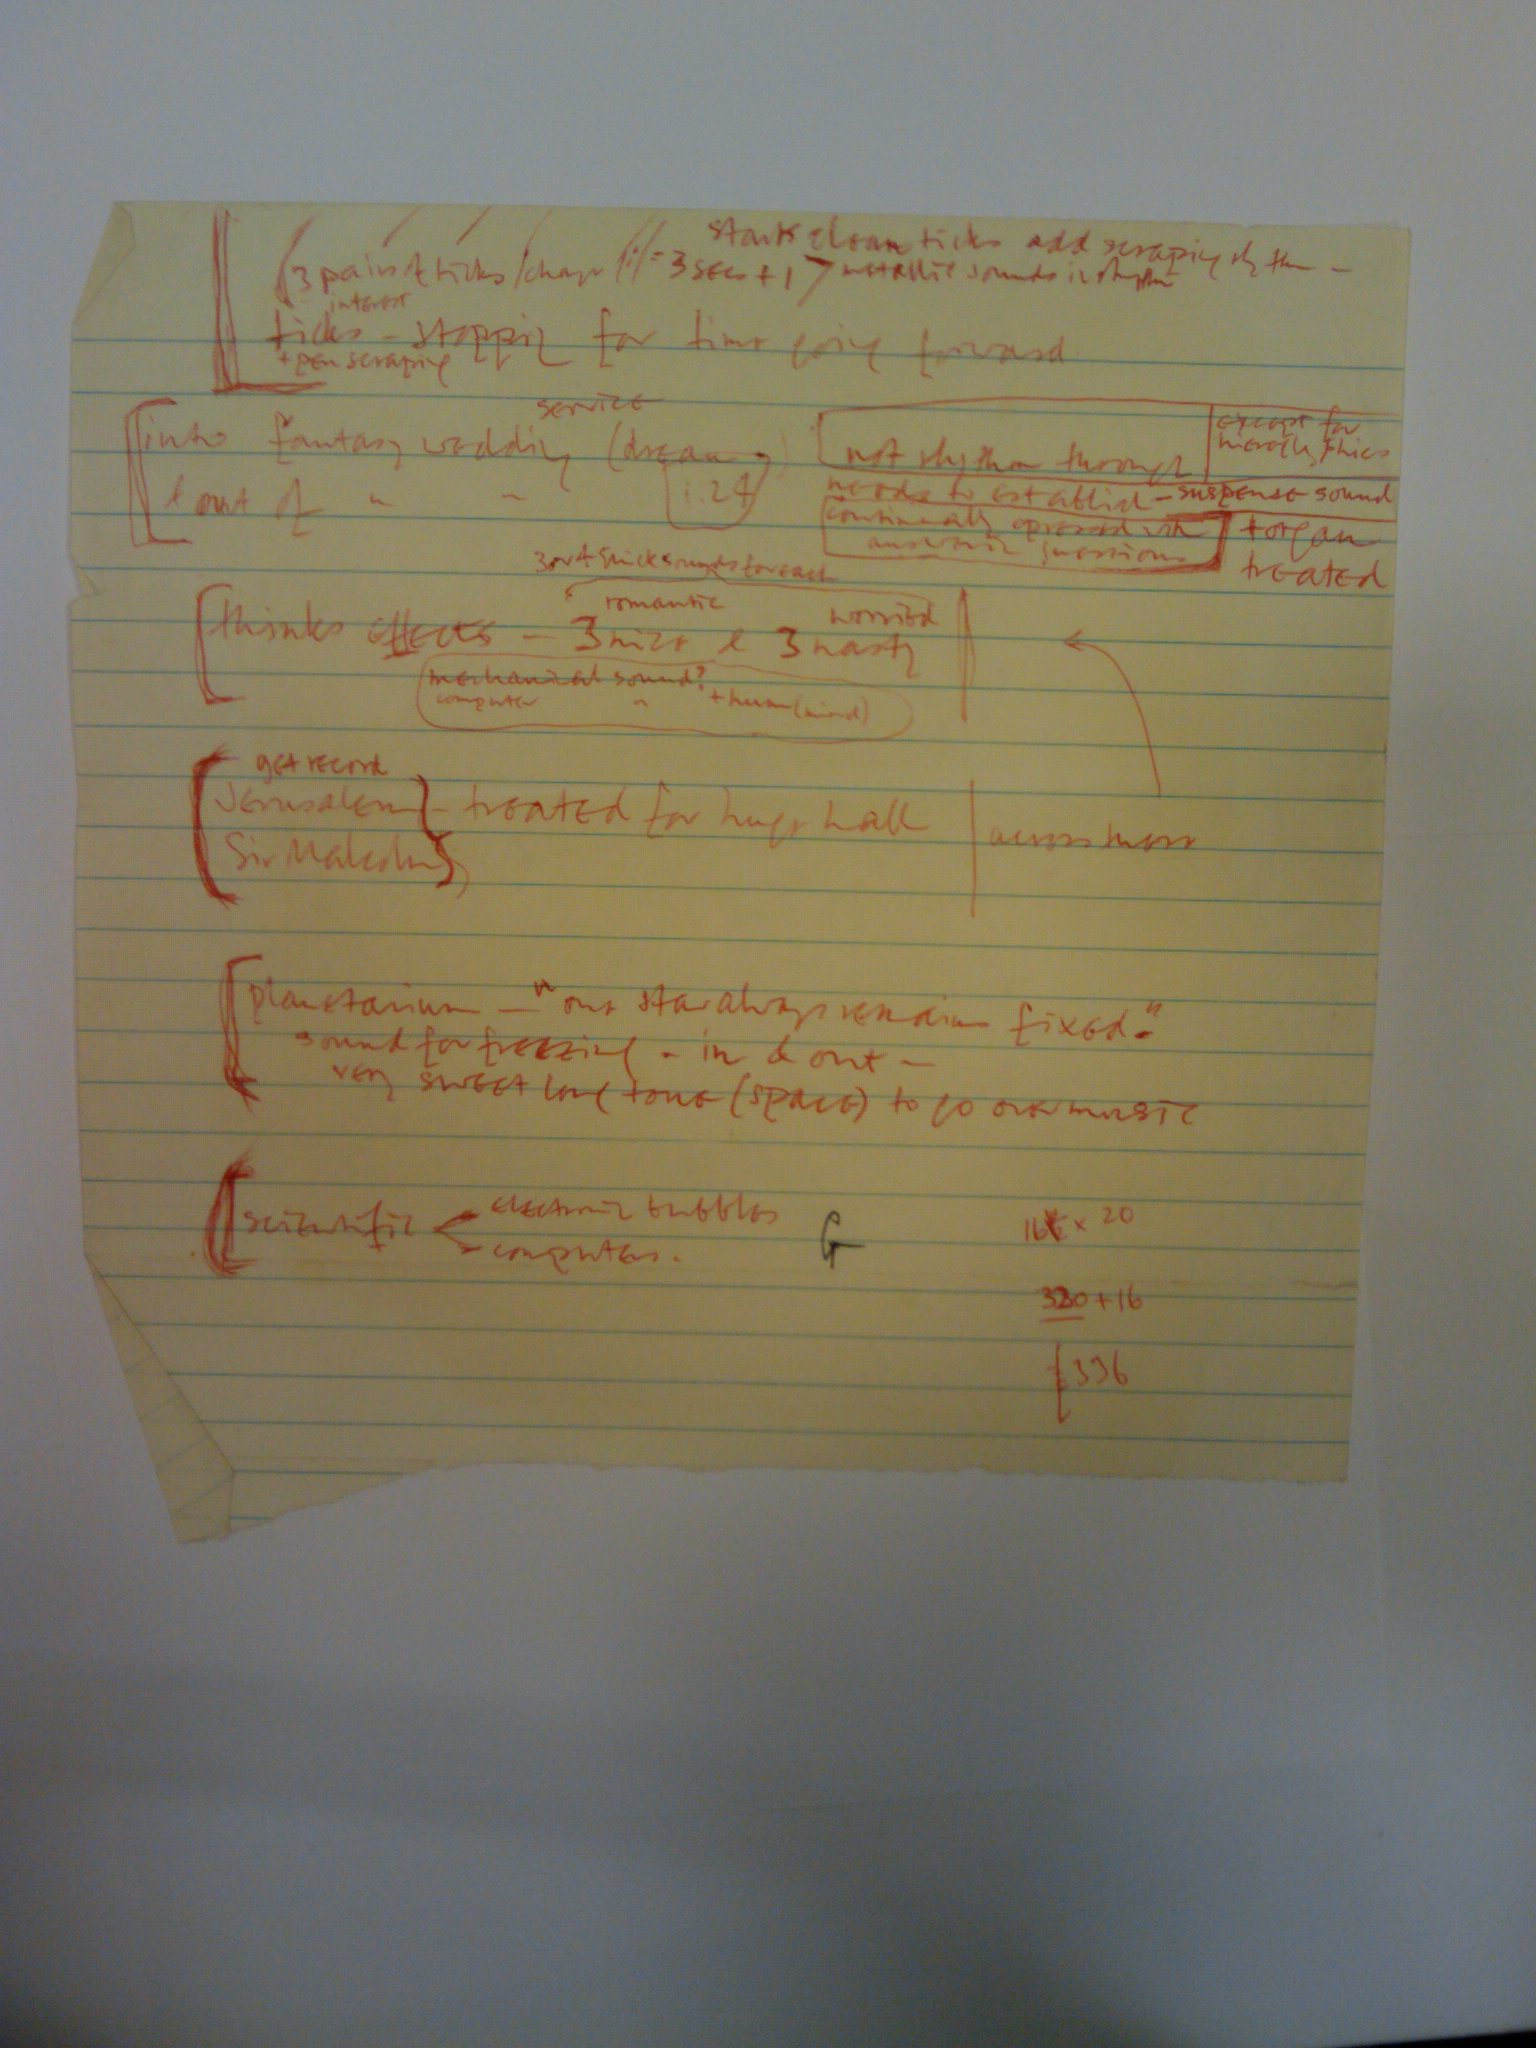 starts clean ticks add scraping rhythm -
3 pairs of ticks / change = 3 secs + 1 > metallic sounds in rhythm
interest
ticks - stopping for time going forward.
+ pen scraping
service
into fantasy wedding (dream)
& out of " " 1.24
not rhythm through
except for
needs to establish - suspense sound
continually
questions
+ organ
treated
3 or 4 quick sounds for each
romantic worried
thinks effects - 3 nice & 3 nasty
mechanical sound?
computer " + hum (mind)
get record
Jerusalem - treated for huge hall
Sir Malcolm
planetarium - "one star always remains fixed."
sound for freezing - in & out -
very sweet long tone (space) to go over music
scientific < electronic bubbles
computers.
G
16 x 20
320 + 16
336